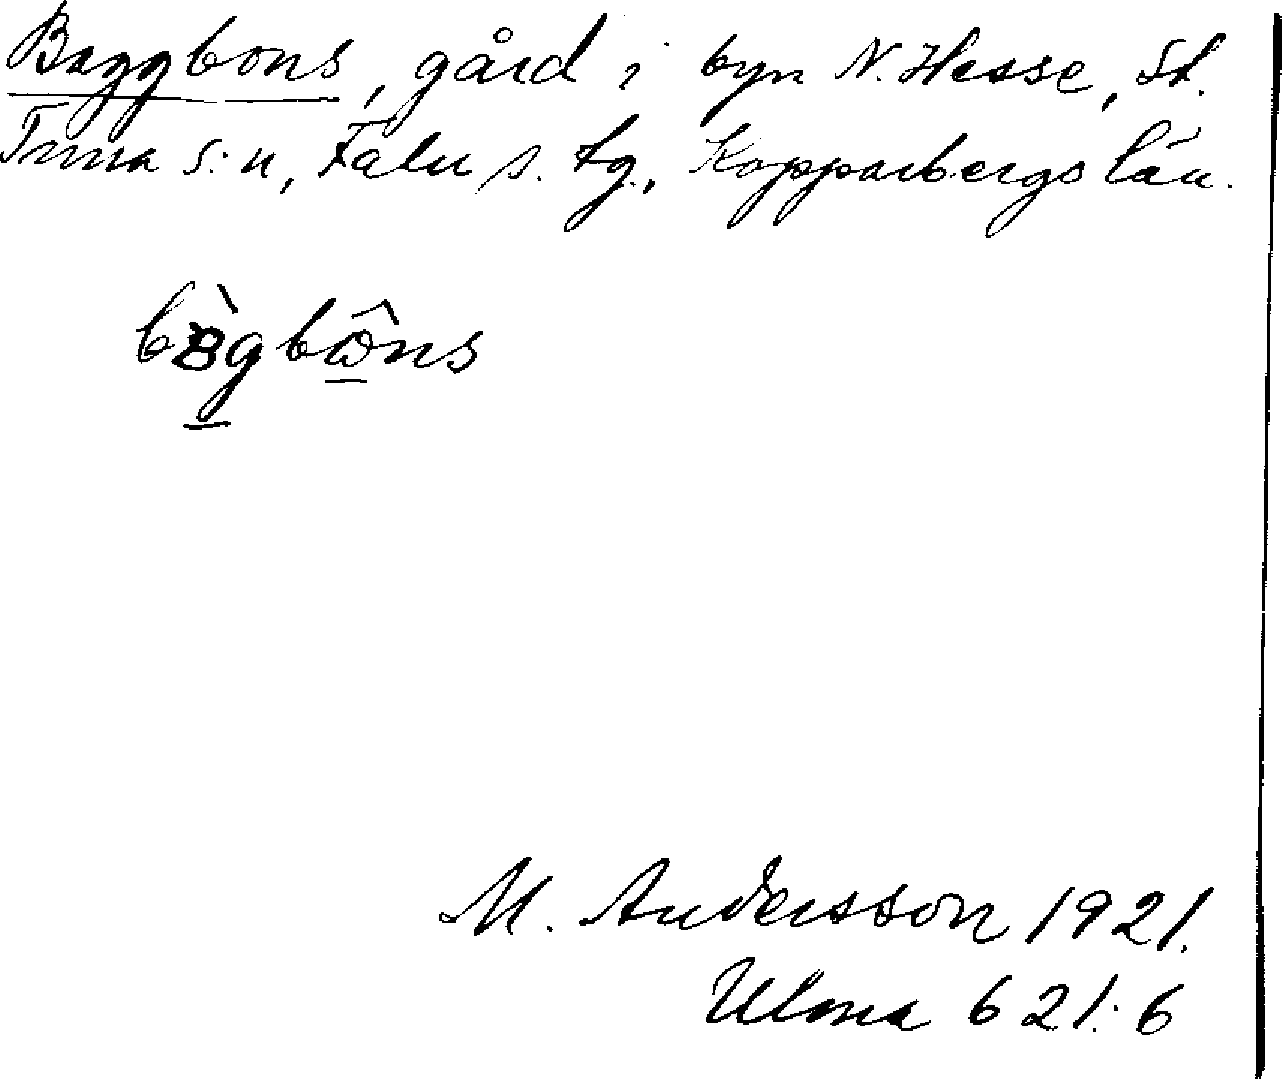 Baggbons, gård i byn N. Hesse, St.
Tuna s:n, Falu s. tg., Kopparbergs län.
bògbω̂ns
M. Andersson 1921.
Ulma 621:6